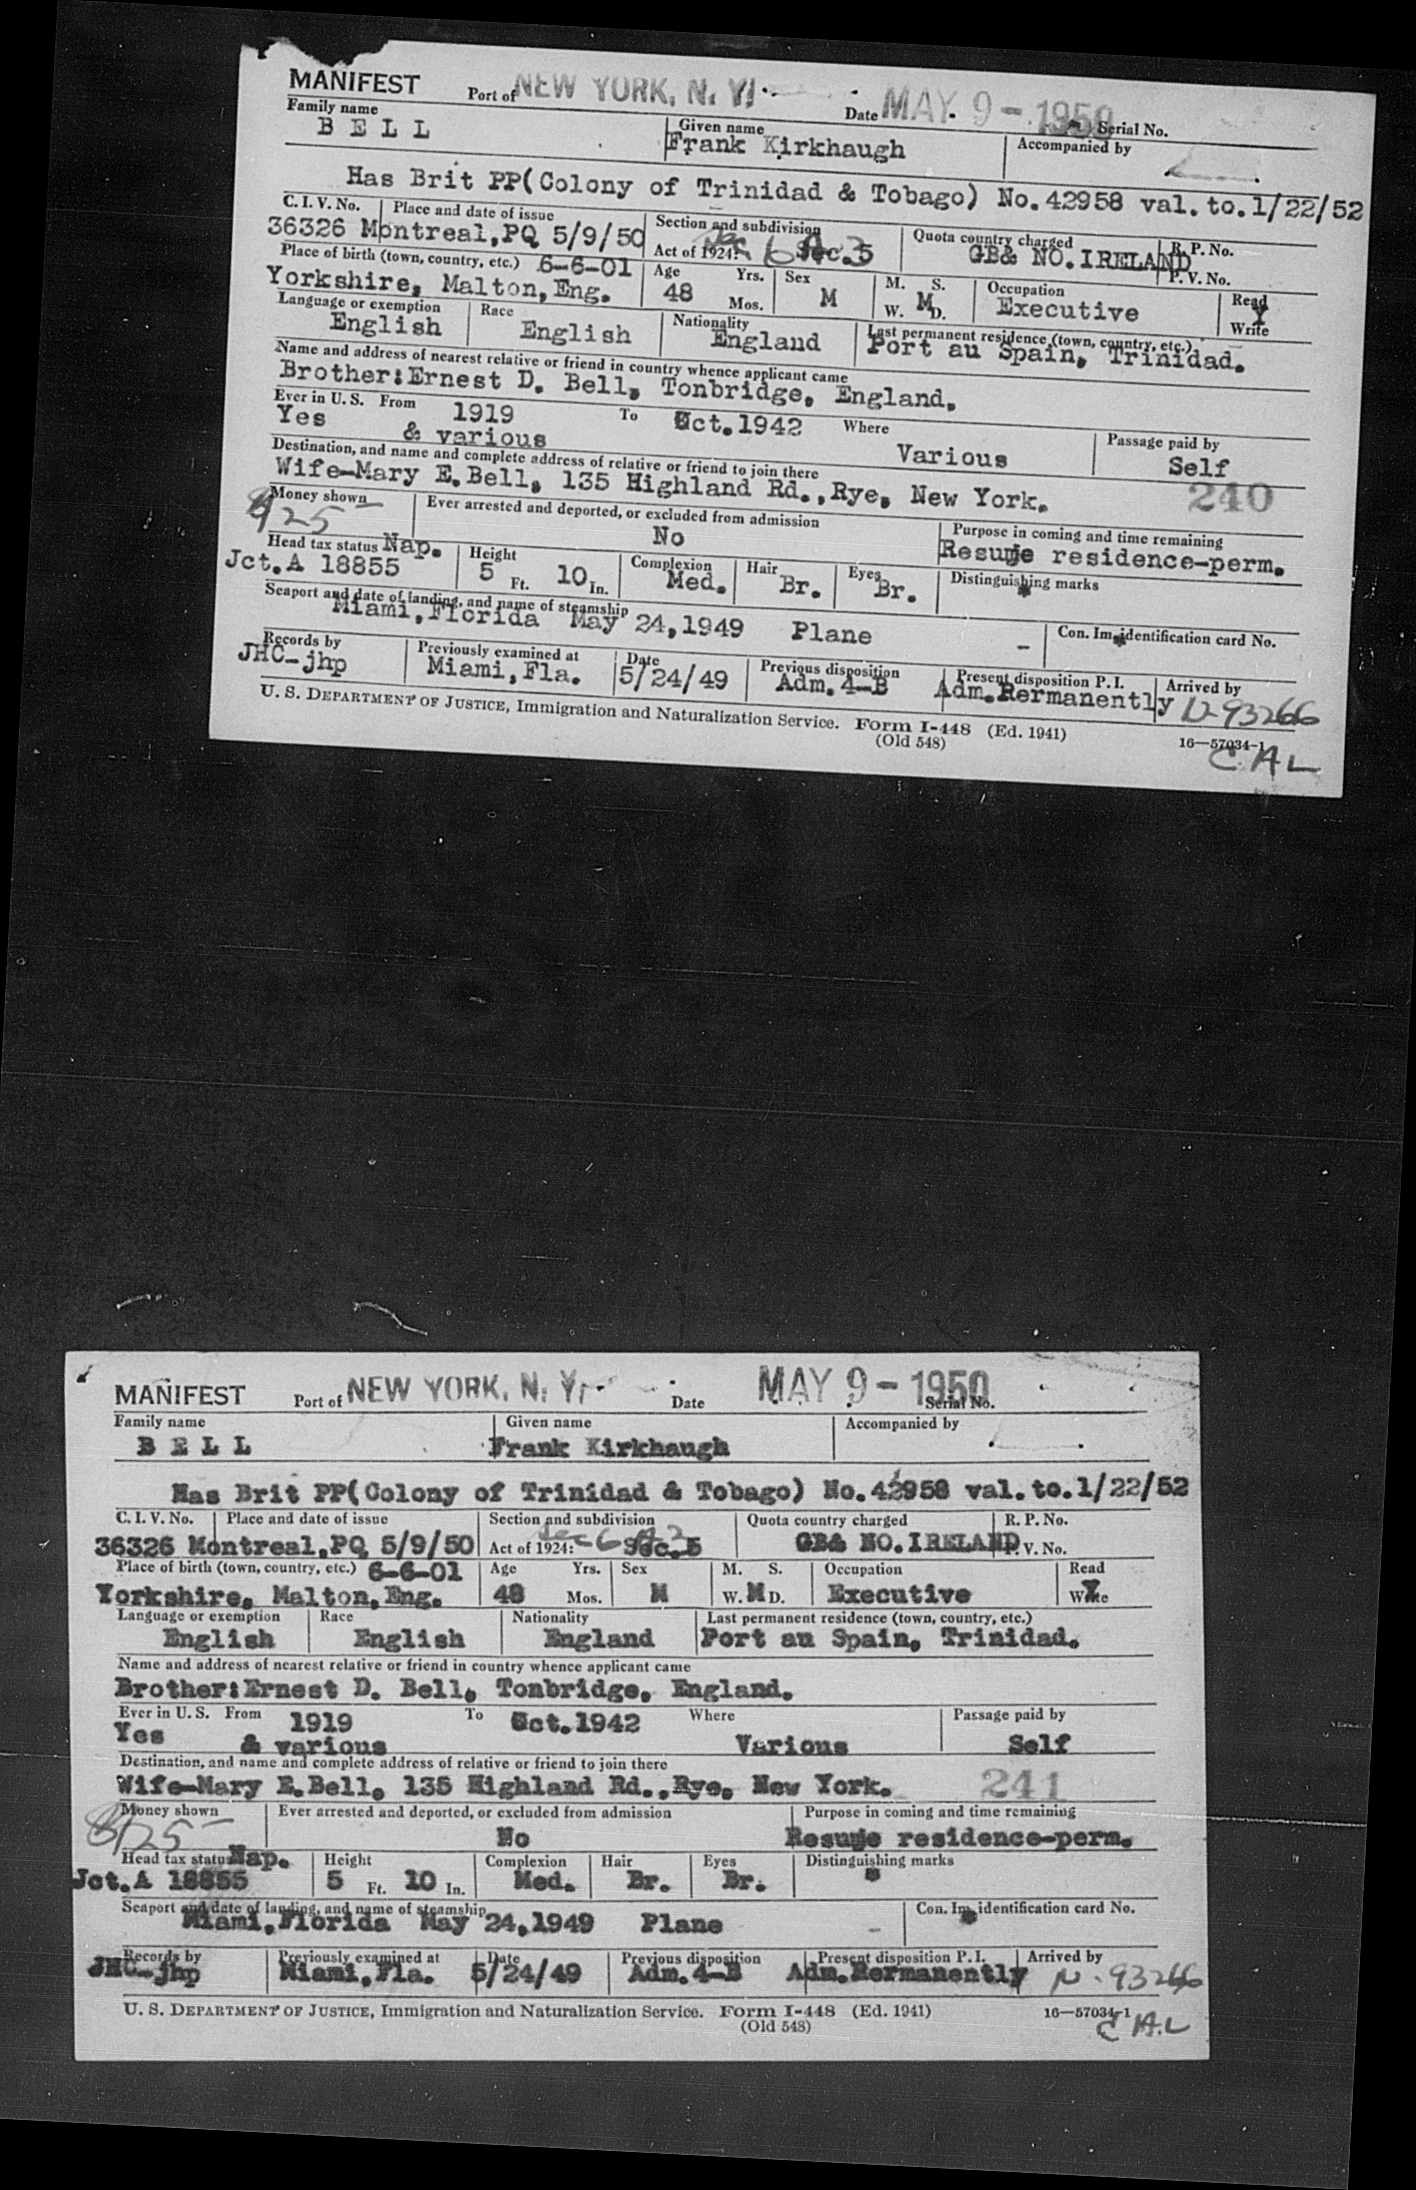 MANIFEST Port of NEW YORK, N. Y. Date MAY 9 - 1950 Serial No.
Family name Given name Accompanied by
BELL Frank Kirkhaugh
Has Brit PP(Colony of Trinidad & Tobago) No.42958 val.to.1/22/52
C. I. V. No. Place and date of issue Section and subdivision Quota country charged R. P. No.
36326 Montreal,PQ 5/9/50 Act of 1924: Sec 6 A 3 Sec.5 GB& NO.IRELAND P. V. No.
Place of birth (town, country, etc.) 6-6-01 Age Yrs. Sex M. S. Occupation Read
Yorkshire, Malton,Eng. 48 Mos. M W. M D. Executive Write
Language or exemption Race Nationality Last permanent residence (town, country, etc.)
English English England Port au Spain, Trinidad.
Name and address of nearest relative or friend in country whence applicant came
Brother:Ernest D. Bell, Tonbridge, England.
Ever in U. S. From 1919 To Oct.1942 Where Passage paid by
Yes & various Various Self
Destination, and name and complete address of relative or friend to join there
Wife-Mary E.Bell, 135 Highland Rd.,Rye, New York. 240
Money shown Ever arrested and deported, or excluded from admission Purpose in coming and time remaining
125 No Resume residence-perm.
Head tax status Nap. Height Complexion Hair Eyes Distinguishing marks
Jct.A 18855 5 Ft. 10 In. Med. Br. Br.
Seaport and date of landing, and name of steamship Con. Im. identification card No.
Miami,Florida May 24,1949 Plane -
Records by Previously examined at Date Previous disposition Present disposition P. I. Arrived by
JHC-jhp Miami,Fla. 5/24/49 Adm.4-B Adm.Permanently N-93266
U. S. DEPARTMENT OF JUSTICE, Immigration and Naturalization Service. Form I-448 (Ed. 1941) 16—57034-1
(Old 548) C A L
MANIFEST Port of NEW YORK, N. Y. Date MAY 9 - 1950 Serial No.
Family name Given name Accompanied by
BELL Frank Kirkhaugh
Has Brit PP(Colony of Trinidad & Tobago) No.42958 val.to.1/22/52
C. I. V. No. Place and date of issue Section and subdivision Quota country charged R. P. No.
36326 Montreal,PQ 5/9/50 Act of 1924: Sec 6 A 3 Sec.5 GB& NO.IRELAND P. V. No.
Place of birth (town, country, etc.) 6-6-01 Age Yrs. Sex M. S. Occupation Read
Yorkshire, Malton,Eng. 48 Mos. M W. M D. Executive Write
Language or exemption Race Nationality Last permanent residence (town, country, etc.)
English English England Port au Spain, Trinidad.
Name and address of nearest relative or friend in country whence applicant came
Brother:Ernest D. Bell, Tonbridge, England.
Ever in U. S. From 1919 To Oct.1942 Where Passage paid by
Yes & various Various Self
Destination, and name and complete address of relative or friend to join there
Wife-Mary E.Bell, 135 Highland Rd.,Rye, New York. 241
Money shown Ever arrested and deported, or excluded from admission Purpose in coming and time remaining
125 No Resume residence-perm.
Head tax status Nap. Height Complexion Hair Eyes Distinguishing marks
Jct.A 18855 5 Ft. 10 In. Med. Br. Br.
Seaport and date of landing, and name of steamship Con. Im. identification card No.
Miami,Florida May 24,1949 Plane -
Records by Previously examined at Date Previous disposition Present disposition P. I. Arrived by
JHC-jhp Miami,Fla. 5/24/49 Adm.4-B Adm.Permanently N-93266
U. S. DEPARTMENT OF JUSTICE, Immigration and Naturalization Service. Form I-448 (Ed. 1941) 16—57034-1
(Old 548) C A.L